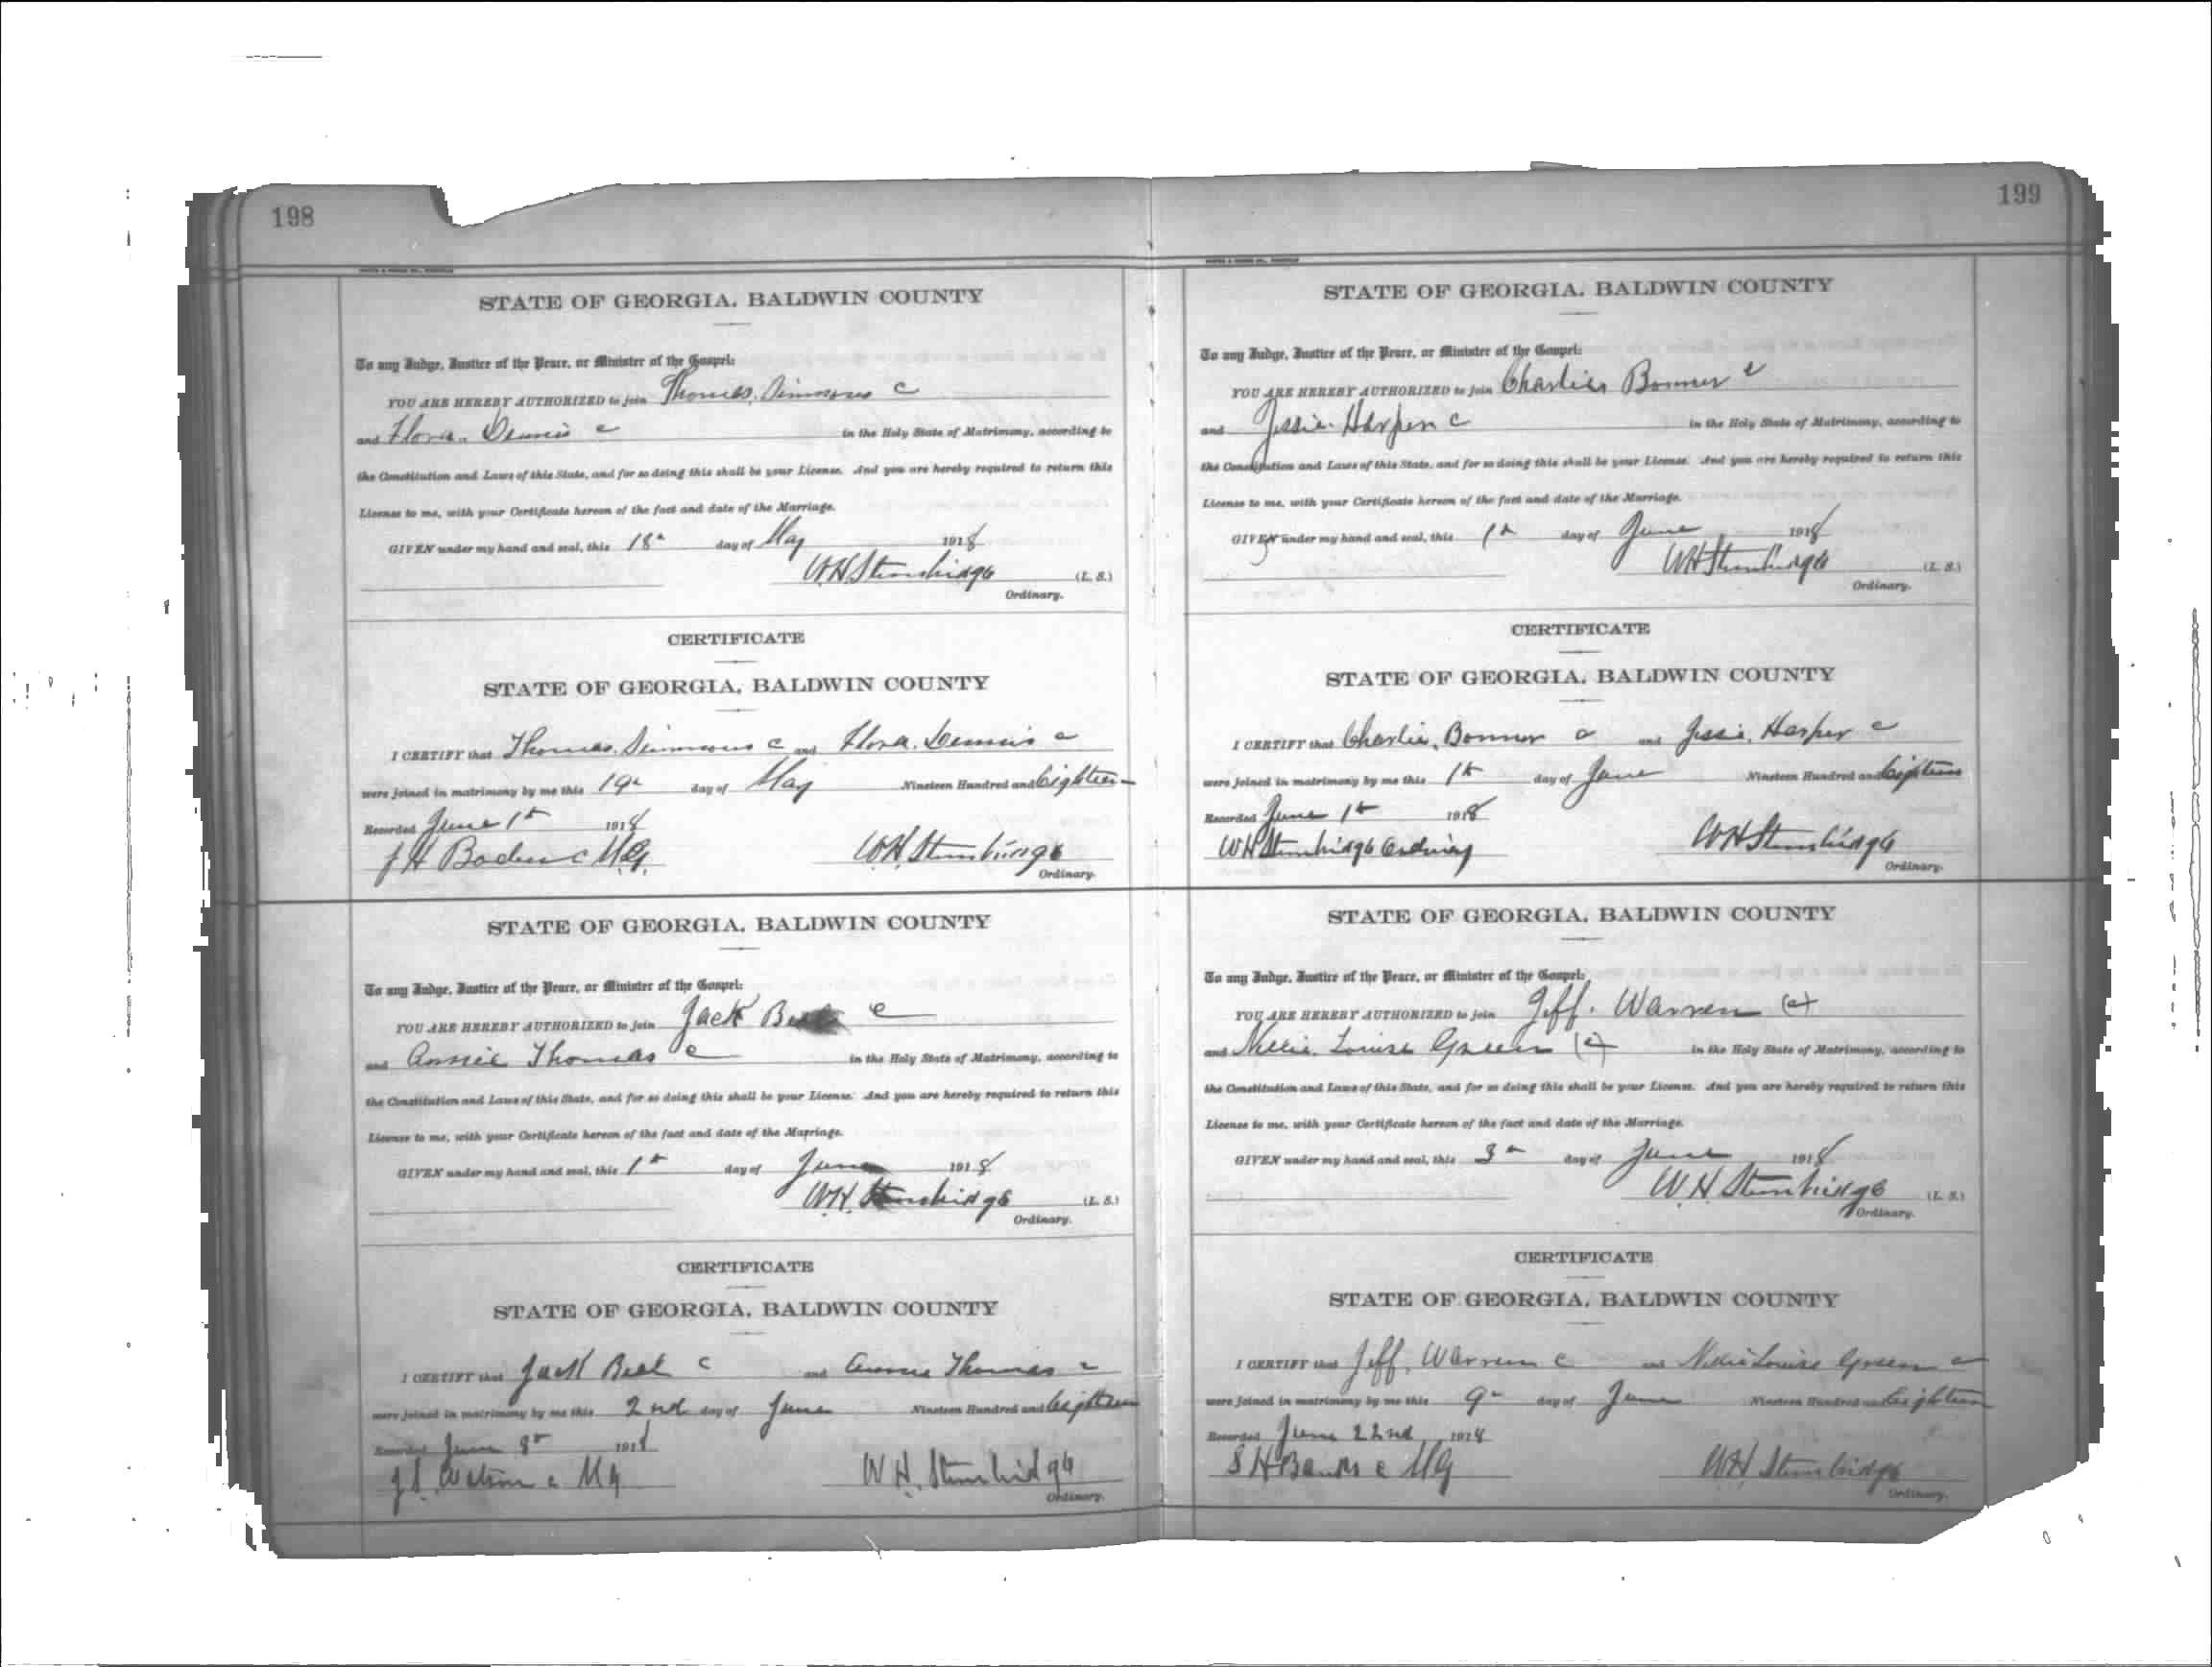 198
STATE OF GEORGIA. BALDWIN COUNTY
To any Judge, Justice of the Peace, or Minister of the Gospel:
YOU ARE HEREBY AUTHORIZED to join Thomas. Simmons c
and Flora. Dennis c in the Holy State of Matrimony, according to
the Constitution and Laws of this State, and for so doing this shall be your License. And you are hereby required to return this
License to me, with your Certificate hereon of the fact and date of the Marriage.
GIVEN under my hand and seal, this 18th day of May 1918
W.H. Stembridge (L. S.)
Ordinary.
CERTIFICATE
STATE OF GEORGIA, BALDWIN COUNTY
I CERTIFY that Thomas. Simmons c and Flora. Dennis c
were joined in matrimony by me this 19th day of May Nineteen Hundred and Eighteen
Recorded June 1st 1918
J H c M.G. W.H. Stembridge
Ordinary.
STATE OF GEORGIA. BALDWIN COUNTY
To any Judge, Justice of the Peace, or Minister of the Gospel:
YOU ARE HEREBY AUTHORIZED to join Jack c
and Annie Thomas c in the Holy State of Matrimony, according to
the Constitution and Laws of this State, and for so doing this shall be your License. And you are hereby required to return this
License to me, with your Certificate hereon of the fact and date of the Marriage.
GIVEN under my hand and seal, this 1st day of June 1918
W.H. Stembridge (L. S.)
Ordinary.
CERTIFICATE
STATE OF GEORGIA. BALDWIN COUNTY
I CERTIFY that Jack c and Annie Thomas c
were joined in matrimony by me this 2nd day of June Nineteen Hundred and Eighteen
Recorded June 8th 1918
J.S. Watson c M G W.H. Stembridge
Ordinary.
199
STATE OF GEORGIA. BALDWIN COUNTY
To any Judge, Justice of the Peace, or Minister of the Gospel:
YOU ARE HEREBY AUTHORIZED to join Charlie Bonner c
and Jessie. Harper c in the Holy State of Matrimony, according to
the Constitution and Laws of this State, and for so doing this shall be your License. And you are hereby required to return this
License to me, with your Certificate hereon of the fact and date of the Marriage.
GIVEN under my hand and seal, this 1st day of June 1918
W H Stembridge (L. S.)
Ordinary.
CERTIFICATE
STATE OF GEORGIA. BALDWIN COUNTY
I CERTIFY that Charlie. Bonner c and Jessie. Harper c
were joined in matrimony by me this 1st day of June Nineteen Hundred and Eighteen
Recorded June 1st 1918
W H Stembridge Ordinary W H Stembridge
Ordinary.
STATE OF GEORGIA. BALDWIN COUNTY
To any Judge, Justice of the Peace, or Minister of the Gospel:
YOU ARE HEREBY AUTHORIZED to join Jeff. Warren (c)
and Nellie. Louise Green (c) in the Holy State of Matrimony, according to
the Constitution and Laws of this State, and for so doing this shall be your License. And you are hereby required to return this
License to me, with your Certificate hereon of the fact and date of the Marriage.
GIVEN under my hand and seal, this 3rd day of June 1918
W H Stembridge (L. S.)
Ordinary.
CERTIFICATE
STATE OF GEORGIA. BALDWIN COUNTY
I CERTIFY that Jeff. Warren c and Nellie Louise Green c
were joined in matrimony by me this 9th day of June Nineteen Hundred and Eighteen
Recorded June 22nd 1918
S H Banks c M G W H Stembridge
Ordinary.